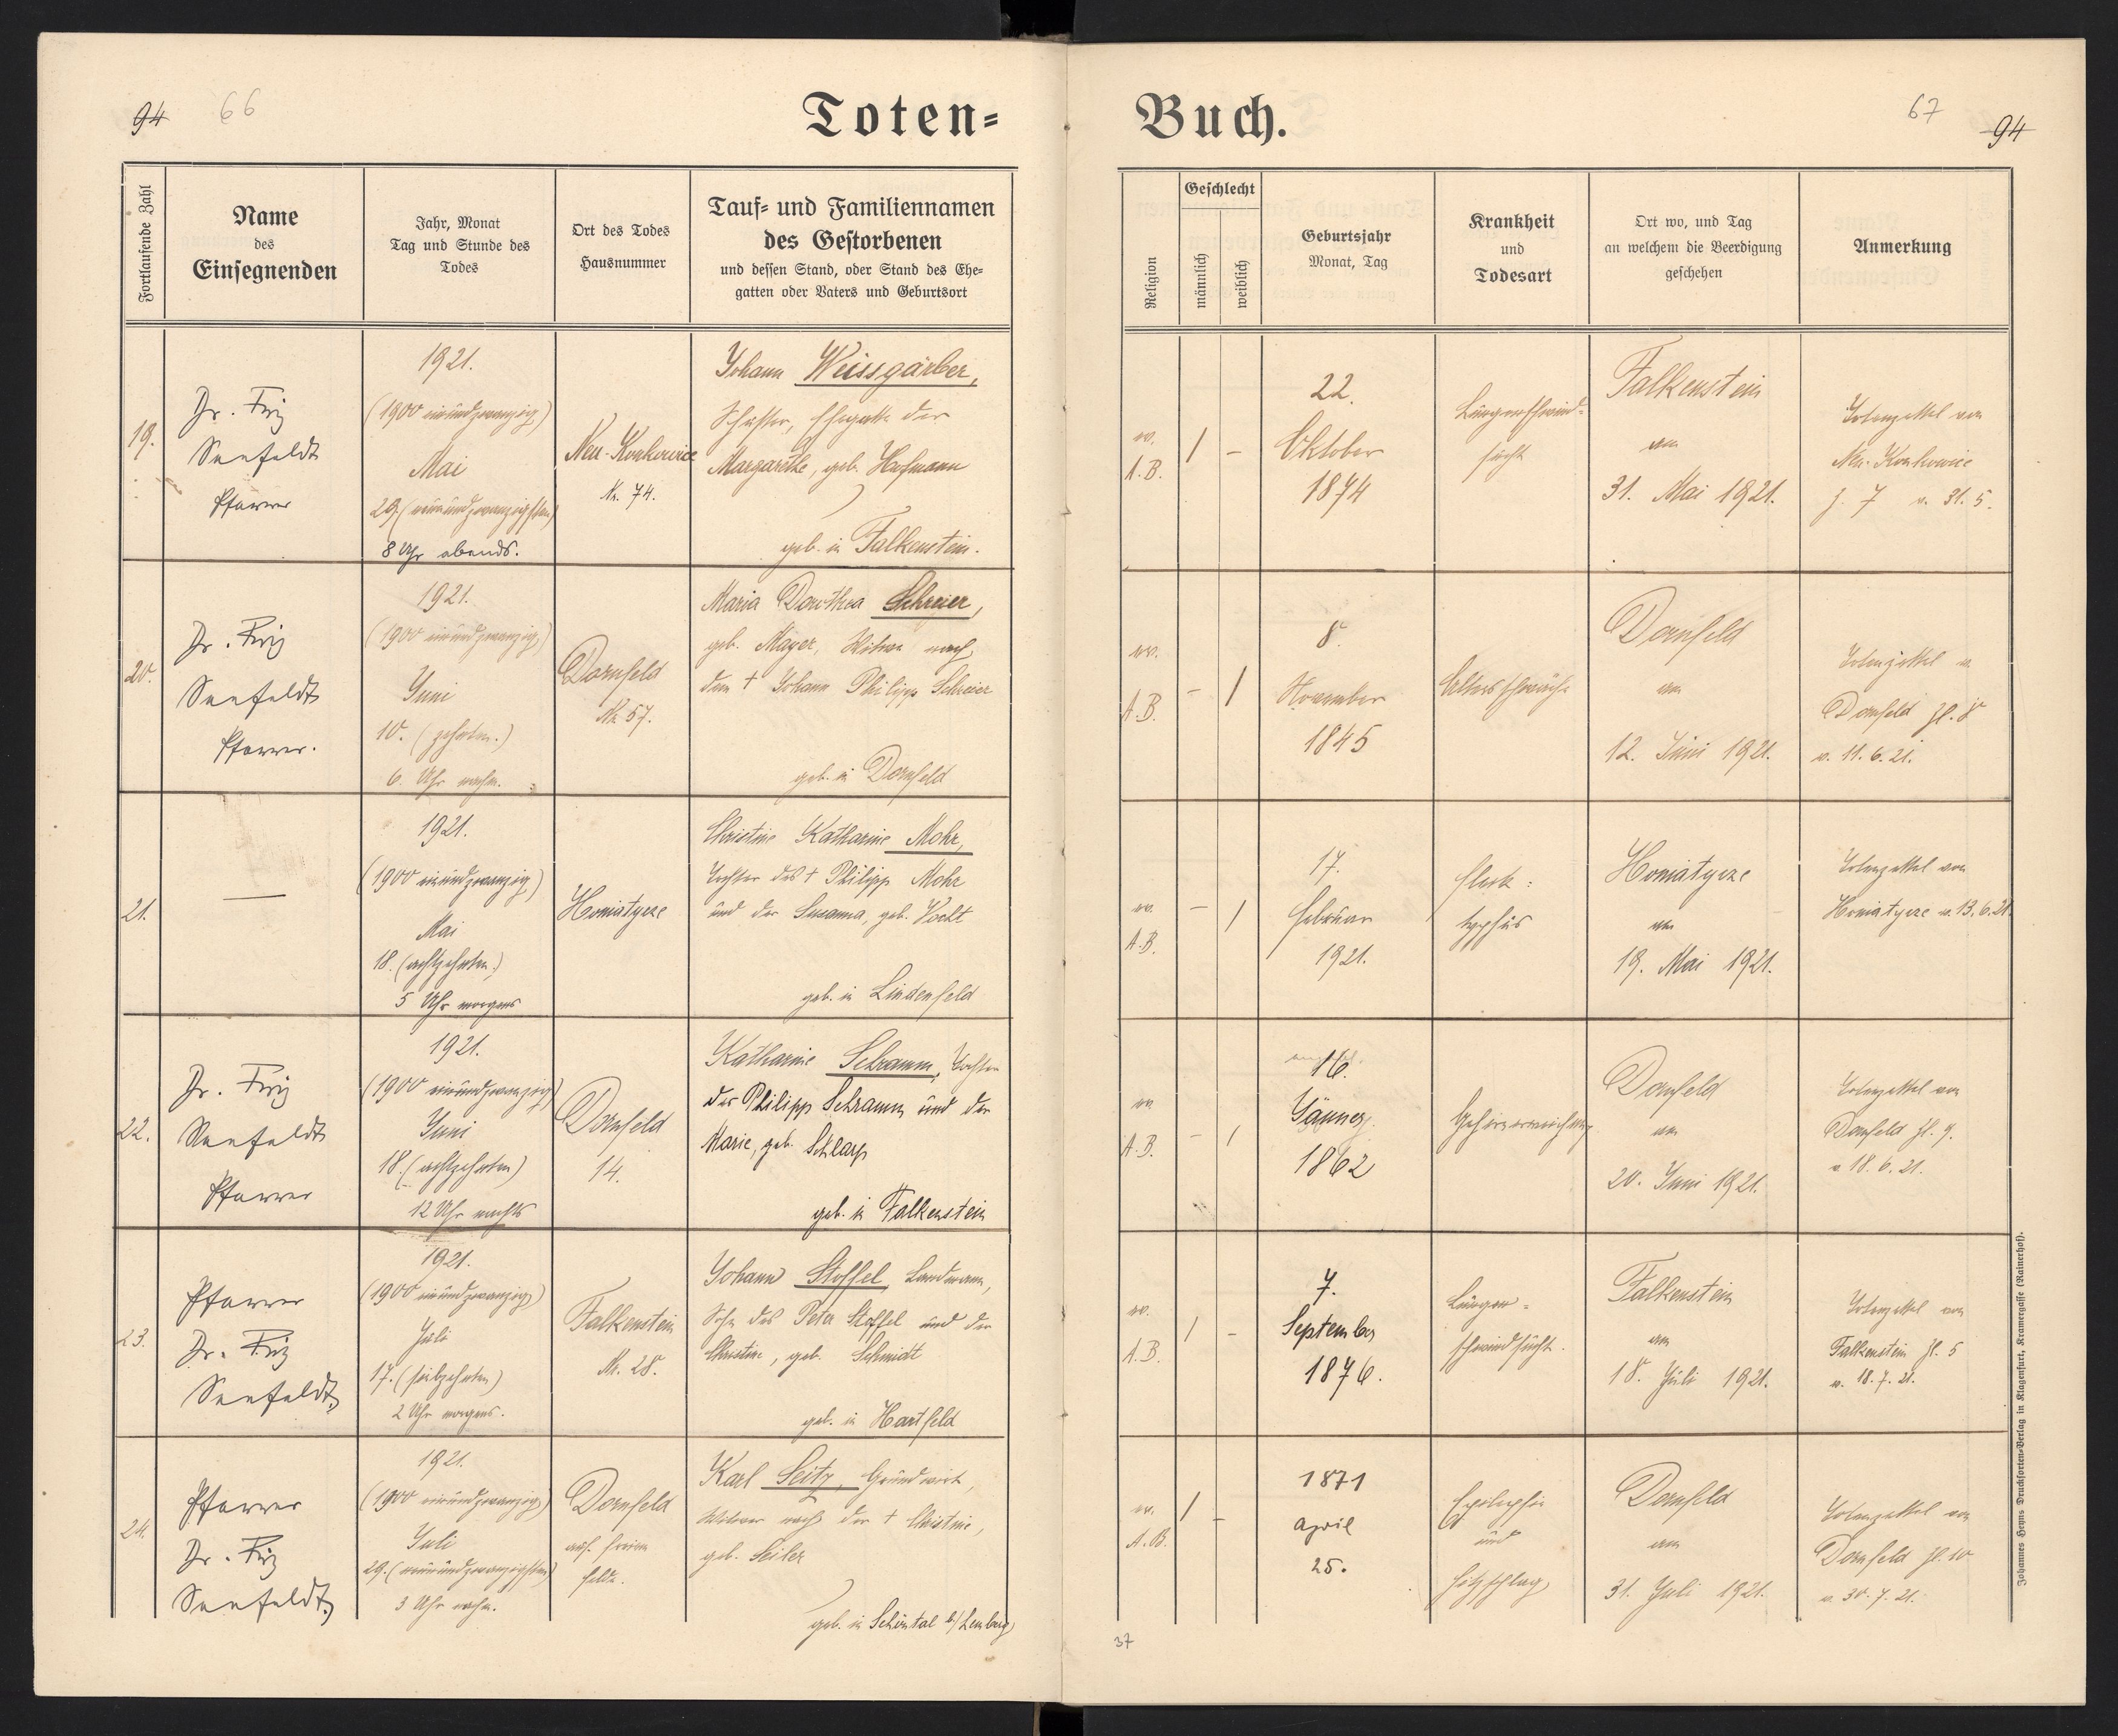 94 66
Toten=
Buch.
67 94
Fortlaufende Zahl
Name
des
Einsegnenden
Jahr, Monat
Tag und Stunde des
Todes
Ort des Todes
Hausnummer
Tauf= und Familiennamen
des Gestorbenen
und dessen Stand, oder Stand des Ehe=
gatten oder Vaters und Geburtsort
Religion
Geschlecht
männlich
weiblich
Geburtsjahr
Monat, Tag
Krankheit
und
Todesart
Ort wo, und Tag
an welchem die Beerdigung
geschehen
Anmerkung
19.
Dr. Friz
Seefeldt
Pfarrer
1921.
(1900 einundzwanzig)
Mai
29. (neunundzwanzigsten)
8 Uhr abends.
Neu-Konkowice
Nr. 74.
Johann Weissgärber,
Schuster, Ehegatte der
Margarethe, geb. Hofmann
geb. in Falkenstein.
ev.
A.B.
/ –
22.
Oktober
1874
Lungenschwind-
sucht
Falkenstein
am
31. Mai 1921.
Totenzettel von
Neu-Konkowice
z. 7 v. 31. 5.
20.
Dr. Friz
Seefeldt
Pfarrer.
1921.
(1900 einundzwanzig)
Juni
10. (zehnten.)
6 Uhr nachm.
Dornfeld
Nr. 57.
Maria Dorothea Schreier,
geb. Mayer, Witwe nach
dem † Johann Philipp Schreier
geb. in Dornfeld
ev.
A.B.
– /
8.
November
1845
Altersschwäche
Dornfeld
am
12. Juni 1921.
Totenzettel v.
Dornfeld Zl. 8
v. 11. 6. 21.
21.
—
1921.
(1900 einundzwanzig)
Mai
18. (achtzehnten)
5 Uhr morgens
Honiatycze
Christine Katharine Mohr,
Tochter des † Philipp Mohr
und der Susanna, geb. Vocht
geb. in Lindenfeld
ev.
A.B.
– /
17.
Februar
1921.
Fleck-
typhus
Honiatycze
am
19. Mai 1921.
Totenzettel von
Honiatycze v. 13. 6. 21.
22.
Dr. Friz
Seefeldt
Pfarrer
1921.
(1900 einundzwanzig)
Juni
18. (achtzehnten)
12 Uhr nachts
Dornfeld
14.
Katharine Schramm, Tochter
des Philipp Schramm und der
Marie, geb. Schlarp
geb. in Falkenstein
ev.
A.B.
– /
16.
Jänner
1862
Gehirnerweichung
Dornfeld
am
20. Juni 1921.
Totenzettel von
Dornfeld Zl. 9.
v. 18. 6. 21.
23.
Pfarrer
Dr. Friz
Seefeldt
1921.
(1900 einundzwanzig)
Juli
17. (siebzehnten)
2 Uhr morgens.
Falkenstein
Nr. 28.
Johann Stoffel, Landmann,
Sohn des Peter Stoffel und der
Christine, geb. Schmidt
geb. in Hartfeld
ev.
A.B.
/ –
7.
September
1876.
Lungen-
schwindsucht.
Falkenstein
am
18. Juli 1921.
Totenzettel von
Falkenstein Zl. 5
v. 18. 7. 21.
24.
Pfarrer
Dr. Friz
Seefeldt
1921.
(1900 einundzwanzig)
Juli
29. (neunundzwanzigsten)
3 Uhr nachm.
Dornfeld
auf freiem
Felde.
Karl Seitz, Grundwirt,
Witwer nach der † Christine,
geb. Seiler
geb. in Schöntal b/Lemberg
ev.
A.B.
/ –
1871
April
25.
Epilepsie
und
Hitzschlag
Dornfeld
am
31. Juli 1921.
Totenzettel von
Dornfeld Zl. 10
v. 30. 7. 21.
37
Johannes Heyns Drucksorten-Verlag in Klagenfurt, Kramergasse (Rainerhof).